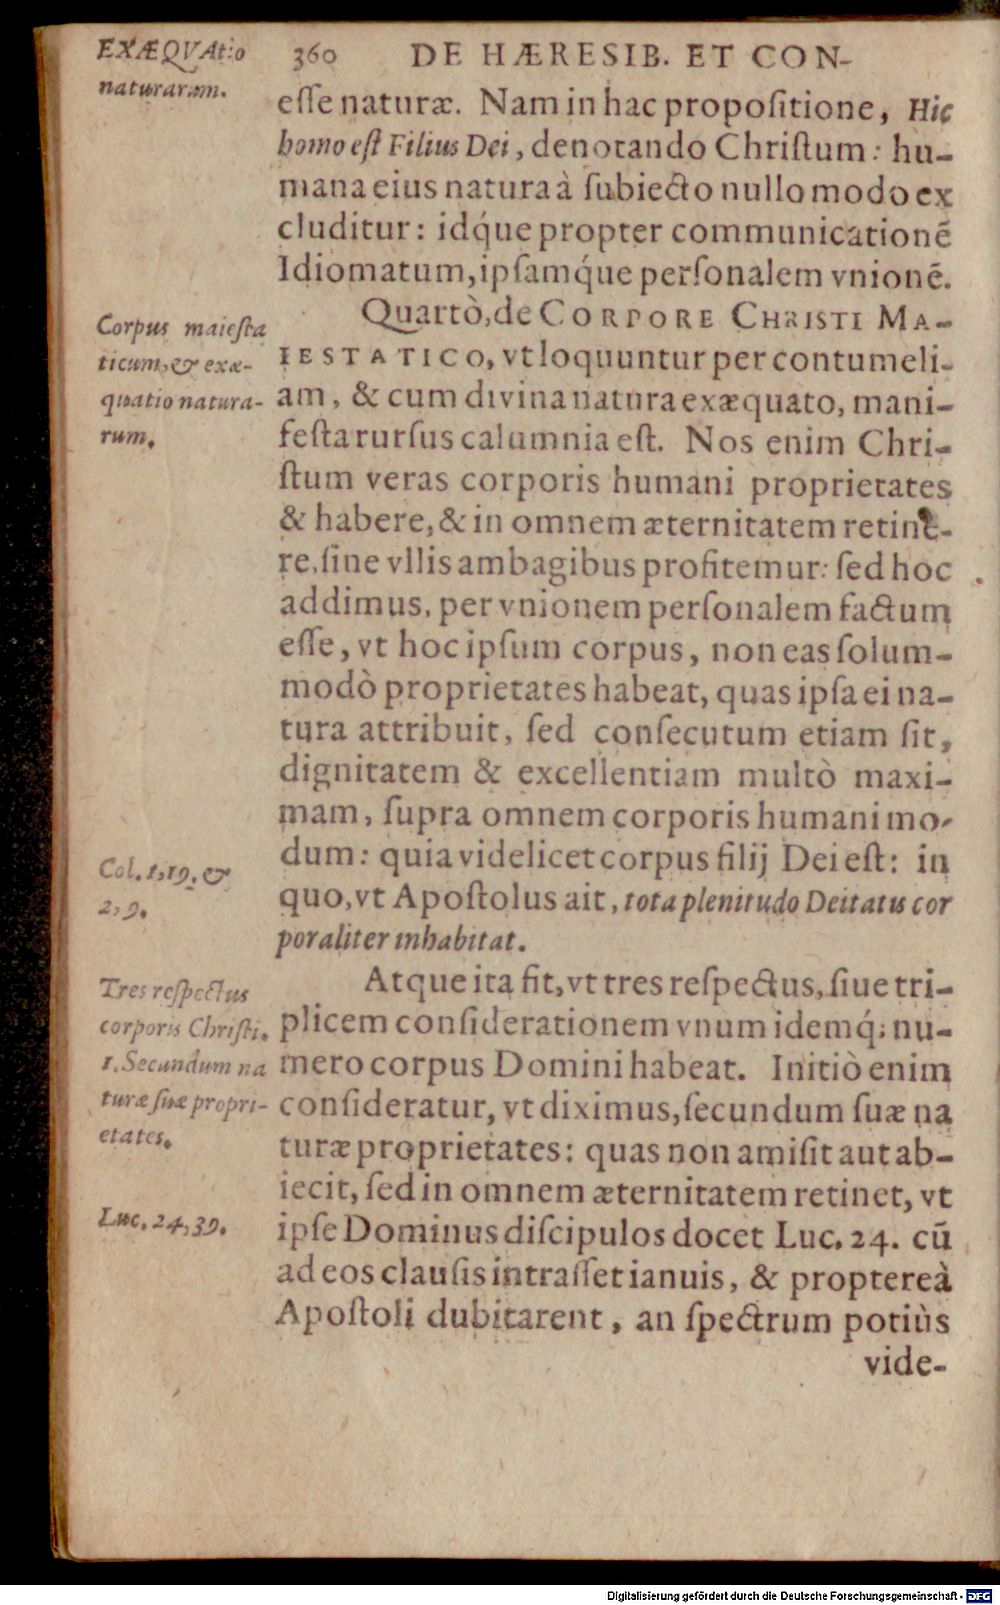 EXÆQVAtio
naturarum.
360 DE HÆRESIB. ET CON-
eſſe naturæ. Nam in hac propoſitione, Hic
homo eſt Filius Dei, denotando Chriſtum: hu-
mana eius natura à ſubiecto nullo modo ex
cluditur: idq́ue propter communicationẽ
Idiomatum, ipſamq́ue perſonalem vnionẽ.
Corpus maieſta
ticum, & exæ-
quatio natura-
rum.
Quartò, de CORPORE CHRISTI MA-
IESTATICO, vt loquuntur per contumeli-
am, & cum divina natura exæquato, mani-
feſta rurſus calumnia eſt. Nos enim Chri-
ſtum veras corporis humani proprietates
& habere, & in omnem æternitatem retine-
re, ſine vllis ambagibus profitemur: ſed hoc
addimus, per vnionem perſonalem factum
eſſe, vt hoc ipſum corpus, non eas ſolum-
modò proprietates habeat, quas ipſa ei na-
tura attribuit, ſed conſecutum etiam ſit,
dignitatem & excellentiam multò maxi-
mam, ſupra omnem corporis humani mo-
dum: quia videlicet corpus filij Dei eſt: in
Col. 1,19. &
2,9.
quo, vt Apoſtolus ait, tota plenitudo Deitatis cor
poraliter inhabitat.
Tres reſpectus
corporis Chriſti.
1. Secundum na
turæ ſuæ propri-
etates.
Atque ita fit, vt tres reſpectus, ſiue tri-
plicem conſiderationem vnum idemq́; nu-
mero corpus Domini habeat. Initiò enim
conſideratur, vt diximus, ſecundum ſuæ na
turæ proprietates: quas non amiſit aut ab-
iecit, ſed in omnem æternitatem retinet, vt
Luc. 24,39.
ipſe Dominus diſcipulos docet Luc. 24. cũ
ad eos clauſis intraſſet ianuis, & propterea̍
Apoſtoli dubitarent, an ſpectrum potiùs
vide-
Digitalisierung gefördert durch die Deutsche Forschungsgemeinschaft - DFG